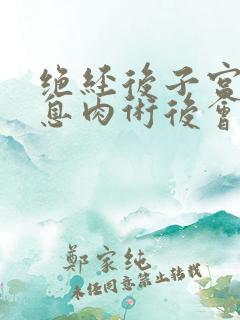 絕經後子宮
息肉術後會
鄭家純
未经同意禁止转载